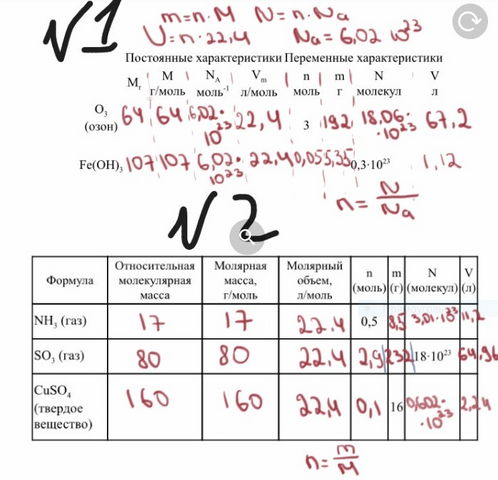 №1
m=n·M N=n·Na
V=n·22,4 Na=6,02·10²³
Постоянные характеристики Переменные характеристики
Mᵣ M г/моль N_A моль⁻¹ Vₘ л/моль n моль m г N молекул V л
O₃ (озон) 64 64 6,02·10²³ 22,4 3 192 18,06·10²³ 67,2
Fe(OH)₃ 107 107 6,02·10²³ 22,4 0,05 5,35 0,3·10²³ 1,12
n=N/Na
№2
Формула Относительная молекулярная масса Молярная масса, г/моль Молярный объем, л/моль n (моль) m (г) N (молекул) V (л)
NH₃ (газ) 17 17 22.4 0,5 8,5 3,01·10²³ 11,2
SO₃ (газ) 80 80 22,4 2,9 232 18·10²³ 64,96
CuSO₄ (твердое вещество) 160 160 22,4 0,1 16 0,602·10²³ 2,24
n=m/M